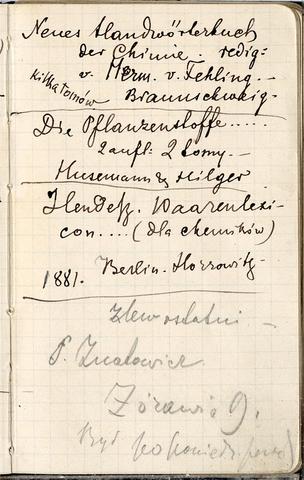 Neues Handwörterbuch
der Chimie. redig-
v. Herm. v. Fehling.—
kilka tomów Braunschweig-
Die Pflanzenstoffe.....
2 aufl. 2 tomy.—
Husemann & Hilger
Waarenlexi-
con....(dla chemików)
1881. Berlin. Horrowitz-
Zlew ostatni —
P. Znatowicz
Żórawia 9.
Był